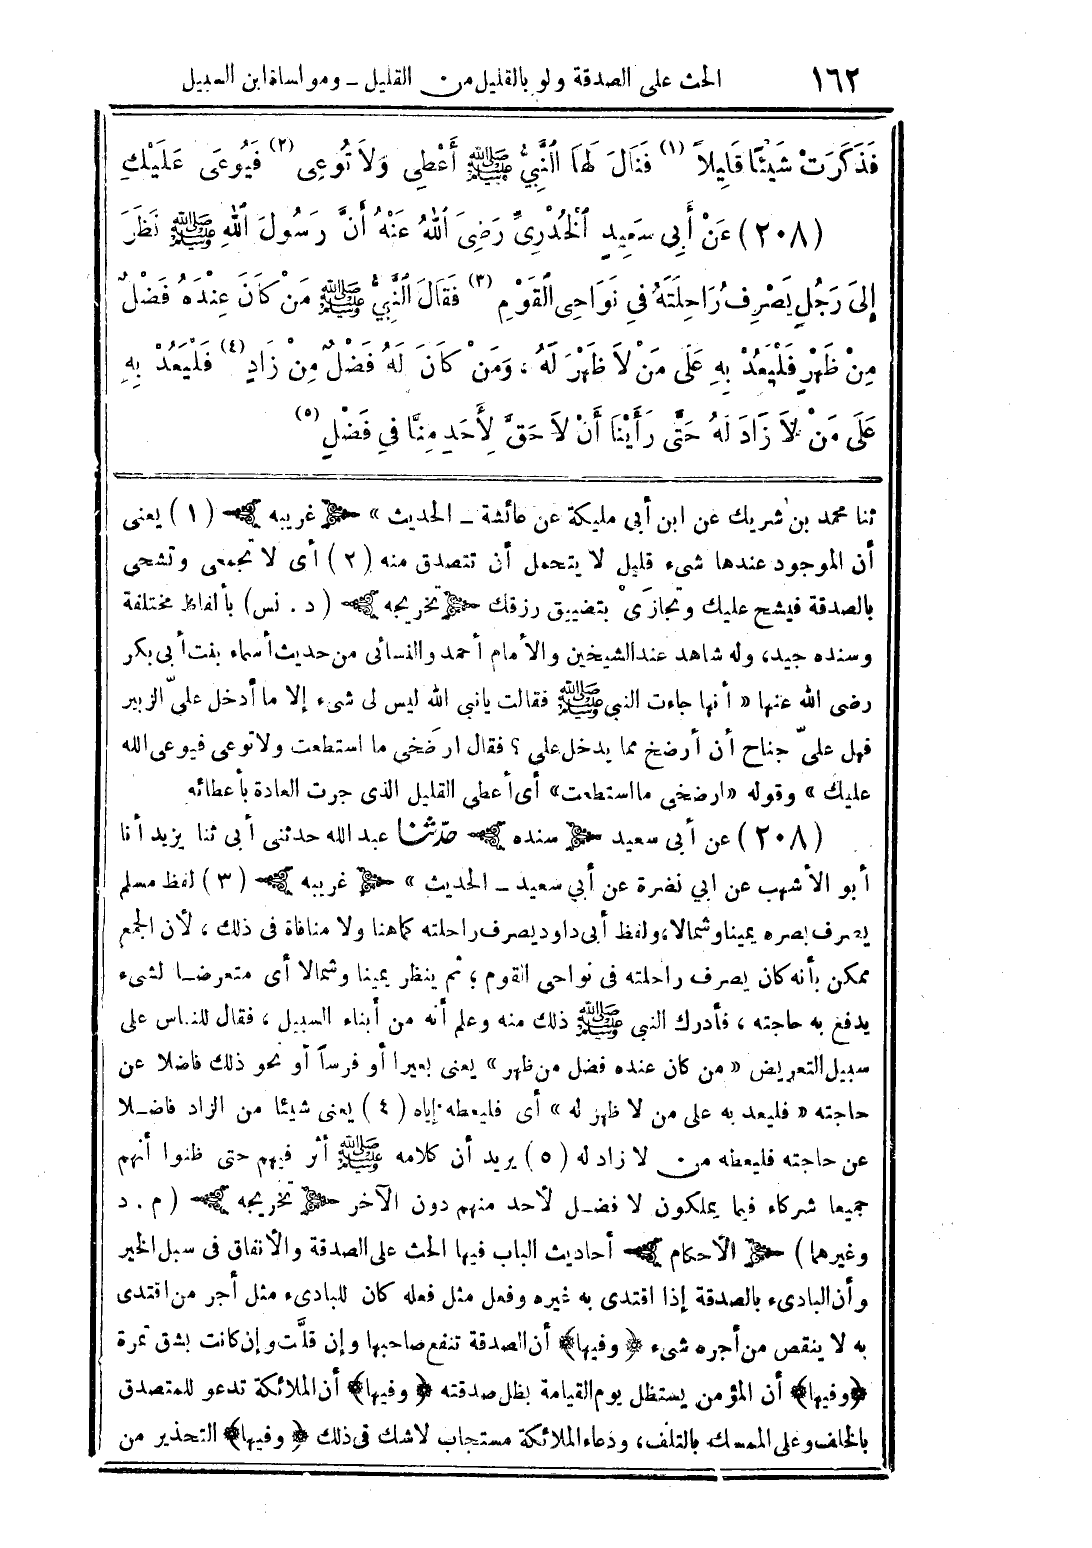 ١٦٢ الحث على الصدقة ولو بالقليل من القليل ـ ومواساة ابن السبيل
فَذَكَرَتْ شَيْئًا قَلِيلاً (١) فَقَالَ لَهَا النَّبِيُّ ﷺ أَعْطِي وَلاَ تُوعِي (٢) فَيُوعَى عَلَيْكِ
(٢٠٨) عَنْ أَبِي سَعِيدٍ الْخُدْرِيِّ رَضِيَ اللهُ عَنْهُ أَنَّ رَسُولَ اللهِ ﷺ نَظَرَ
إِلَى رَجُلٍ يَصْرِفُ رَاحِلَتَهُ فِي نَوَاحِي القَوْمِ (٣) فَقَالَ النَّبِيُّ ﷺ مَنْ كَانَ عِنْدَهُ فَضْلٌ
مِنْ ظَهْرٍ فَلْيَعُدْ بِهِ عَلَى مَنْ لاَ ظَهْرَ لَهُ ، وَمَنْ كَانَ لَهُ فَضْلٌ مِنْ زَادٍ (٤) فَلْيَعُدْ بِهِ
عَلَى مَنْ لاَ زَادَ لَهُ حَتَّى رَأَيْنَا أَنْ لاَ حَقَّ لِأَحَدٍ مِنَّا فِي فَضْلٍ (٥)
ثنا محمد بن شريك عن ابن أبي مليكة عن عائشة ـ الحديث » ﴿ غريبه ﴾ (١) يعنى
أن الموجود عندها شىء قليل لا يتحمل أن تتصدق منه (٢) أى لا تجمعى وتشحى
بالصدقة فيشح عليك وتجازَىْ بتضييق رزقك ﴿ تخريجه ﴾ ( د . نس) بألفاظ مختلفة
وسنده جيد، وله شاهد عند الشيخين والأمام أحمد والنسائى من حديث أسماء بنت أبى بكر
رضى الله عنها « أنها جاءت النبى ﷺ فقالت يانبى الله ليس لى شىء إلا ما أدخل علىّ الزبير
فهل علىّ جناح أن أرضخ مما يدخل على ؟ فقال ارضَخى ما استطعت ولا توعى فيوعى الله
عليك » وقوله «ارضخى ما استطعت» أى أعطى القليل الذى جرت العادة بأعطائه
(٢٠٨) عن أبى سعيد ﴿ سنده ﴾ حدّثنا عبد الله حدثنى أبى ثنا يزيد أنا
أبو الأشهب عن ابي نضرة عن أبي سعيد ـ الحديث » ﴿ غريبه ﴾ (٣) لفظ مسلم
يصرف بصره يمينا وشمالا، ولفظ أبى داود يصرف راحلته كما هنا ولا منافاة فى ذلك ، لأن الجمع
ممكن بأنه كان يصرف راحلته فى نواحى القوم ؛ ثم ينظر يمينا وشمالا أى متعرضـا لشىء
يدفع به حاجته ، فأدرك النبى ﷺ ذلك منه وعلم أنه من أبناء السبيل ، فقال للناس على
سبيل التعريض « من كان عنده فضل من ظهر » يعنى بعيرا أو فرساً أو نحو ذلك فاضلا عن
حاجته « فليعد به على من لا ظهر له » أى فليعطه إياه (٤) يعنى شيئا من الزاد فاضـلا
عن حاجته فليعطه من لا زاد له (٥) يريد أن كلامه ﷺ أثر فيهم حتى ظنوا أنهم
جميعا شركاء فيما يملكون لا فضـل لأحد منهم دون الآخر ﴿ تخريجه ﴾ (م . د
وغيرهما) ﴿ الأحكام ﴾ أحاديث الباب فيها الحث على الصدقة والأنفاق فى سبل الخير
وأن البادىء بالصدقة إذا اقتدى به غيره وفعل مثل فعله كان للبادىء مثل أجر من اقتدى
به لا ينقص من أجره شىء ﴿ وفيها ﴾ أن الصدقة تنفع صاحبها وإن قلَّت وإن كانت بشق تمرة
﴿ وفيها ﴾ أن المؤمن يستظل يوم القيامة بظل صدقته ﴿ وفيها ﴾ أن الملائكة تدعو للمتصدق
بالخلف وعلى الممسك بالتلف، ودعاء الملائكة مستجاب لاشك فى ذلك ﴿ وفيها ﴾ التحذير من